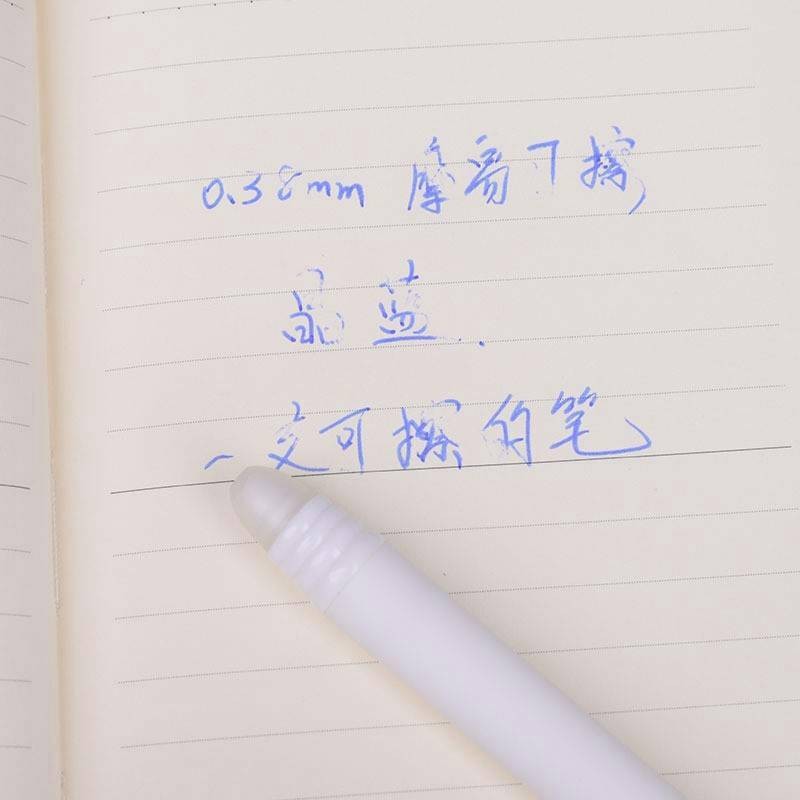 0.38mm 摩易可擦
晶蓝.
一支可擦的笔